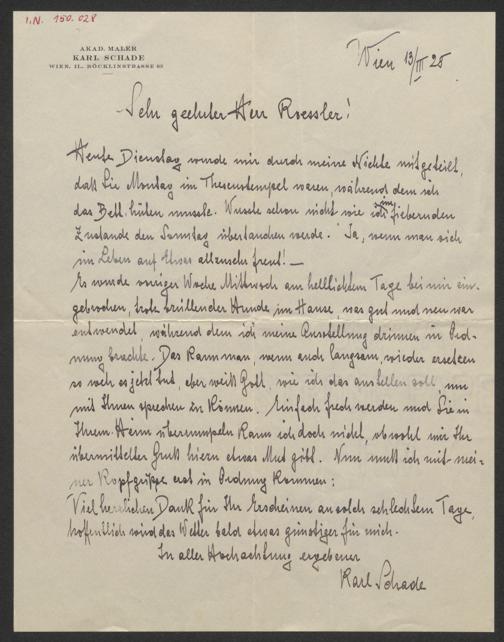 I.N. 150.028
AKAD. MALER
KARL SCHADE
WIEN, II., BÖCKLINSTRASSE
Wien 13/III 28
Sehr geehrter Herr Roessler!
Heute Dienstag wurde mir durch meine Nichte mitgeteilt,
daß Sie Montag im Theseustempel waren, während dem ich
das Bett hüten musste. Wusste schon nicht wie ich im fiebernden
Zustande den Sonntag überstanden werde. Ja, wenn man sich
im Leben auf Etwas allzusehr freut! —
Es wurde voriger Woche Mittwoch am hellichten Tage bei mir ein-
gebrochen, trotz brüllender Hunde im Hause, was gut und neu war
entwendet, während dem ich meine Ausstellung drinnen in Ord-
nung brachte. Das kann man, wenn auch langsam, wieder ersetzen
so weh es jetzt tut, aber weiß Gott, wie ich das anstellen soll, um
mit Ihnen sprechen zu können. Einfach frech werden und Sie in
Ihrem Heim überrumpeln kann ich doch nicht, obwohl mir Ihr
übermittelter Gruß hiezu etwas Mut gibt. Nun muß ich mit mei-
ner Kopfgrippe erst in Ordnung kommen:
Viel herzlichen Dank für Ihr Erscheinen an solch schlechtem Tage,
hoffentlich wird das Wetter bald etwas günstiger für mich.
In aller Hochachtung ergebener
Karl Schade